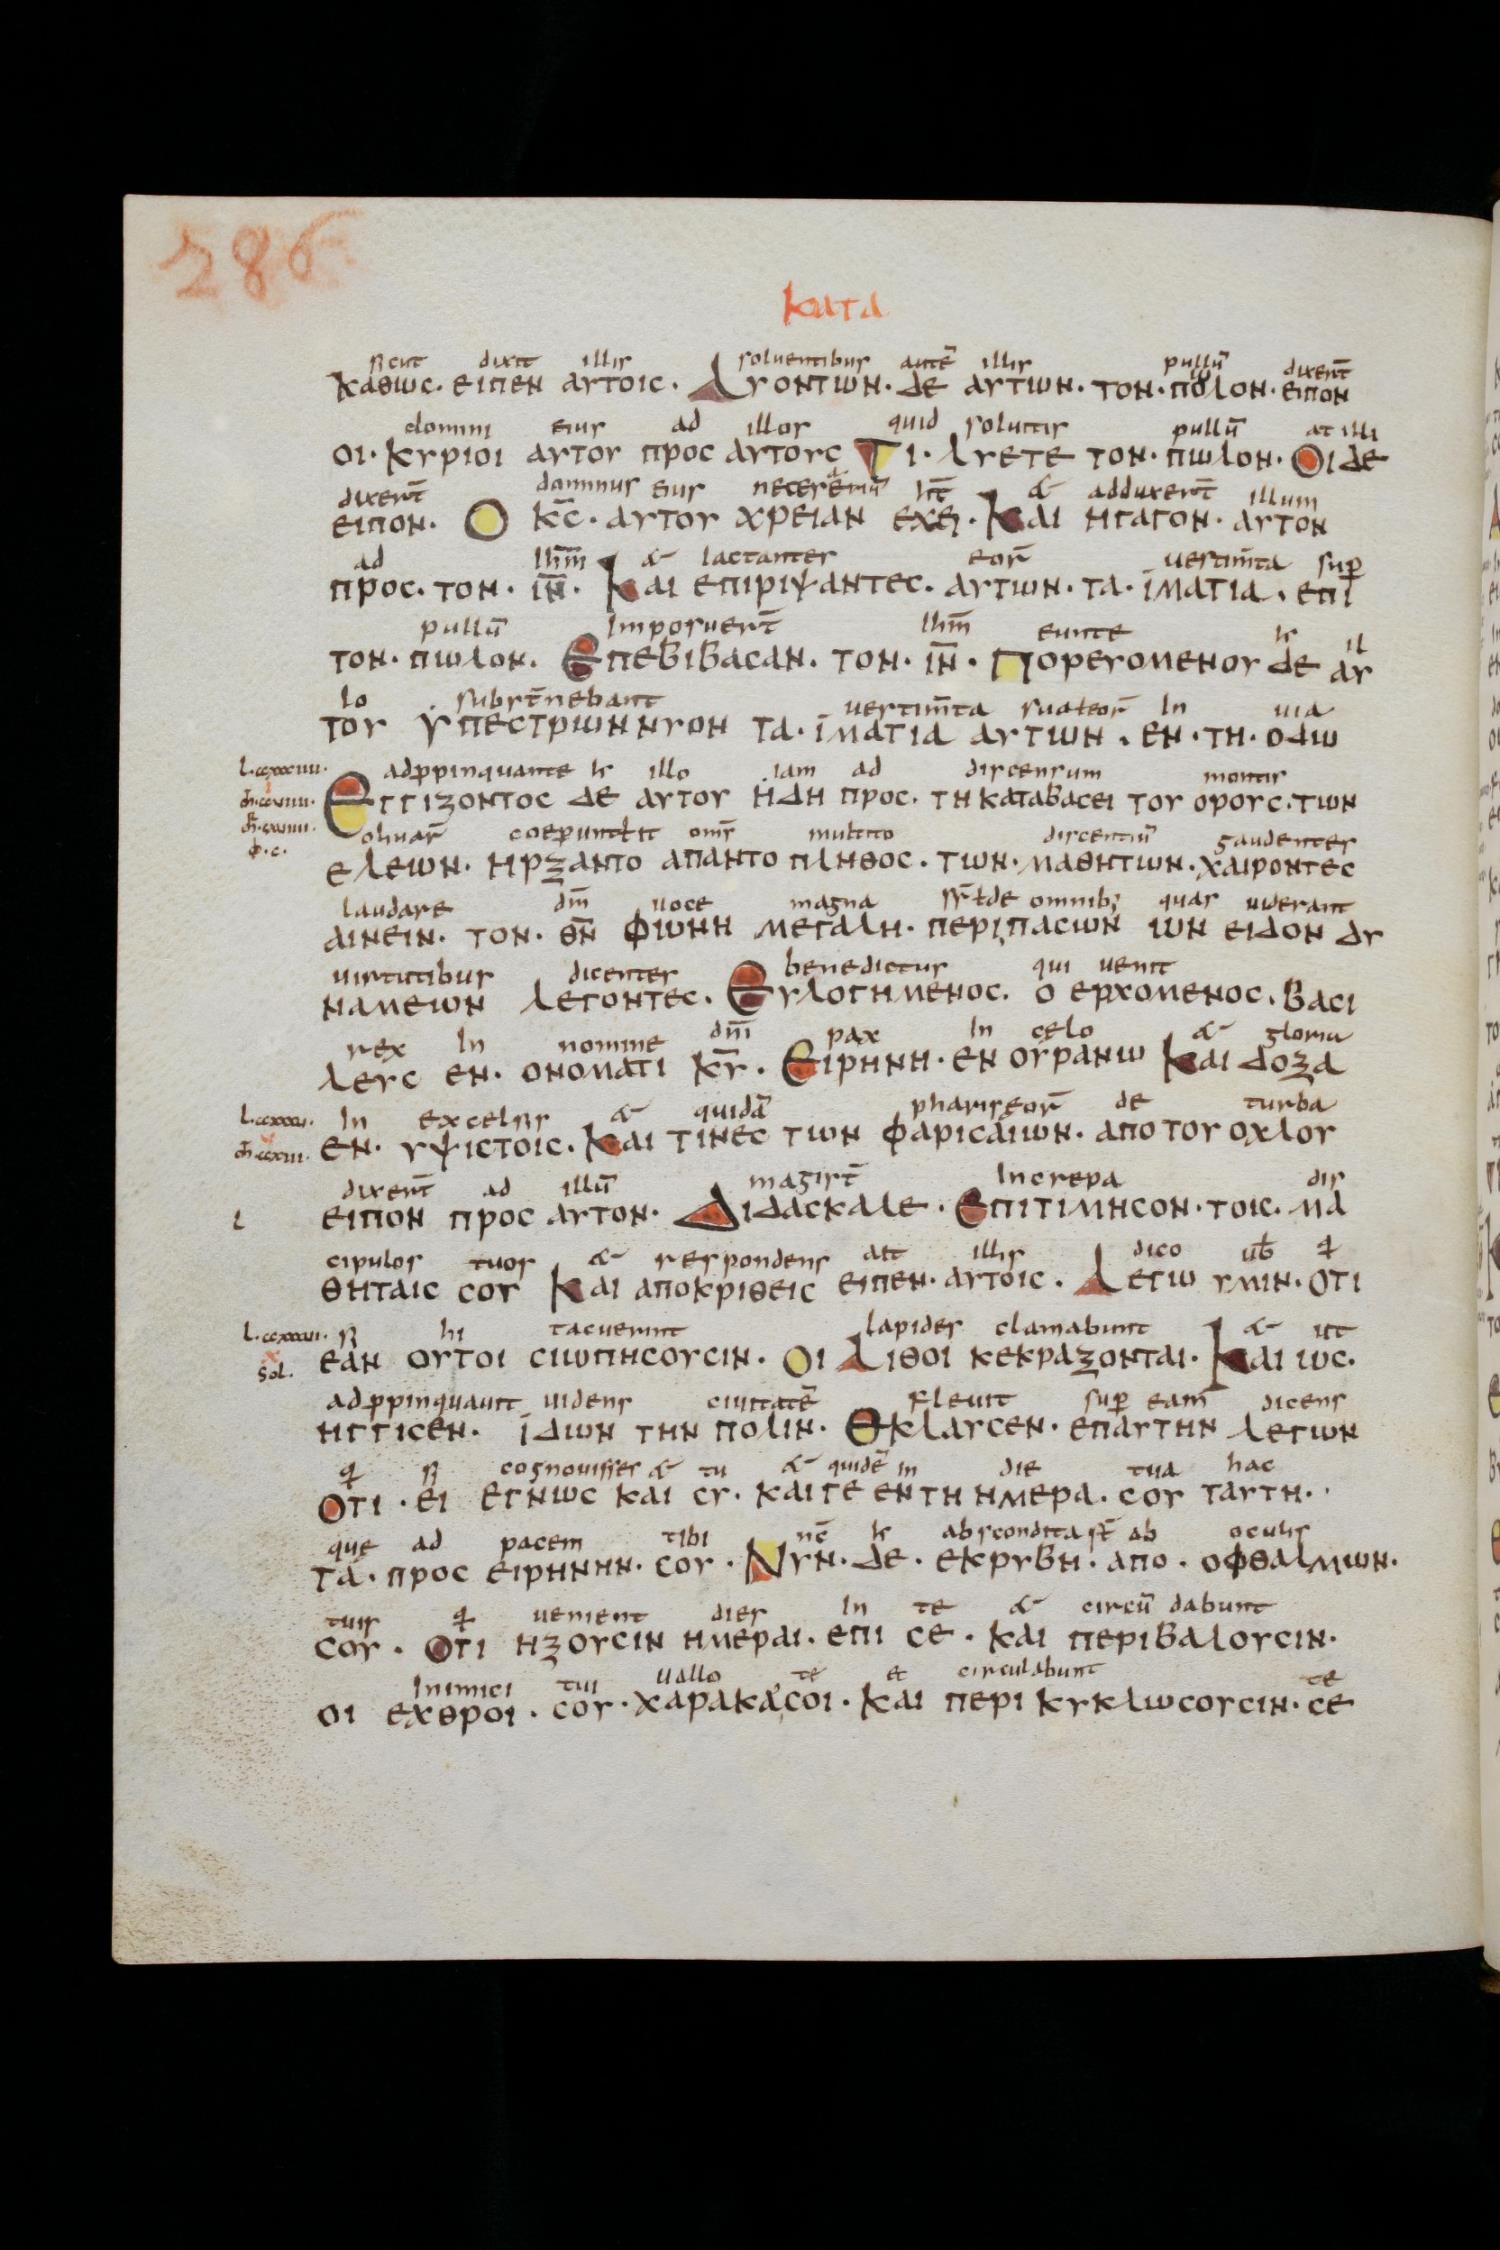 286
κατα
sicut dixit illis soluentibus autē illis pullū dixert̄
καθως· ειπεν αυτοις· Λυοντων· δε αυτων· τον· πολον· ειπον
domini eius ad illos quid soluitis pullū at illi
οι· κυριοι αυτου προς αυτους Τι· λυετε τον· πωλον· Οι δε
dixert̄ dominus eius necesse hт̄ & adduxert̄ illum
ειπον· Ο κ̅ς̅· αυτου χρειαν εχει· Και ηγαγον· αυτον
ad ihm̄ & iactantes eor̄ uestim̄ta sup
προς· τον· ι̅ν̅· Και επιριψαντες· αυτων· τα· ϊματια· επι
pullū imposuert̄ ihm̄ eunte h il
τον· πωλον· Επεβιβασαν· τον· ι̅ν̅· Πορευομενου δε αυ
lo subst̄nebant uestim̄ta sua ł eor̄ in uia
του ϋπεστρωννυον τα· ϊματια αυτων· εν· τη· οδω
adppinquante h illo iam ad discensum montis
Εγγιζοντος δε αυτου ηδη προς· τη καταβασει του ορους· των
φ·c·
oliuar̄ coeperunt oms̄ multito discentiū gaudentes
ελεων· ηρξαντο απαντο πληθος· των· μαθητων· χαιροντες
laudare dm̄ uoce magna sr̄ ł de omnib; quas uiderant
αινειν· τον· θ̅ν̅ φωνη μεγαλη· περι πασων ων ειδον δυ
uirtutibus dicentes benedictus qui uenit
ναμεων λεγοντες· Ευλογημενος· ο ερχομενος· βασι
rex in nomine dn̄i pax in celo & gloria
λευς εν· ονοματι κ̅υ̅· Ειρηνη· εν ουρανω Και δοξα
in excelsis & quidā phariseor̄ de turba
εν· υψιστοις· Και τινες των φαρισαιων· απο του οχλου
dixert̄ ad illū magistr̄ increpa dis
ειπον προς αυτον· Διδασκαλε· Επιτιμησον· τοις· μα
cipulos tuos & respondens ait illis dico ub̄ q
θηταις σου Και αποκριθεις ειπεν· αυτοις· Λεγω υμιν· οτι
si hi tacuerint lapides clamabunt & ut
εαν ουτοι σιωπησουσιν· Οι Λιθοι κεκραξονται· Και ως·
Sol.
adppinquauit uidens ciuitatē fleuit sup eam dicens
ηγγισεν· ϊδων την πολιν· Εκλαυσεν· επαυτην λεγων
q si cognouisses & tu & quidē in die tua hac
Οτι· ει εγνως και συ· και γε εν τη ημερα· σου ταυτη·
que ad pacem tibi nc̄ h abscondita st̄ ab oculis
τα· προς ειρηνην· σου· Νυν· δε· εκρυβη· απο· οφθαλμων·
tuis q uenient dies in te & circū dabunt
σου· Οτι ηξουσιν ημεραι· επι σε· και περιβαλουσιν·
inimici tui uallo te et circulabunt te
οι εχθροι· σου· χαρακα, σοι· και περι κυκλωσουσιν· σε